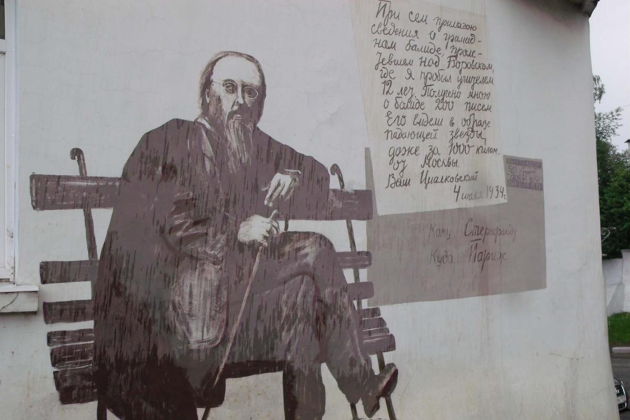 При сем прилагаю
сведения о громад-
ном болиде, проле-
тевшем над Боровском,
где я пробыл учителем
12 лет. Получено мною
о болиде 200 писем
Его видели в образе
падающей звезды
даже за 1000 килом.
от Москвы.
Ваш Циалковский
4 июля 1934г.
Кому Стернфельду
Куда Париж